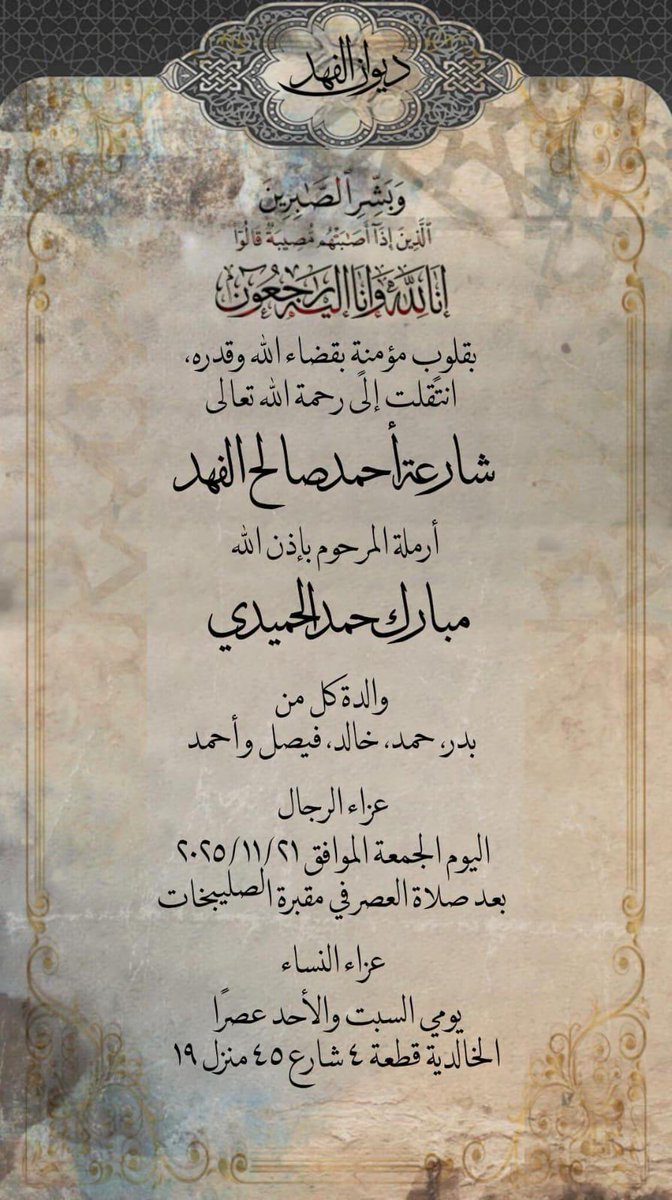 ديوان الفهد
وَبَشِّرِ ٱلصَّٰبِرِينَ
ٱلَّذِينَ إِذَآ أَصَٰبَتْهُم مُّصِيبَةٌ قَالُوٓا۟
إنا لله وإنا إليه راجعون
بقلوبٍ مؤمنة بقضاء الله وقدره،
انتقلت إلى رحمة الله تعالى
شارعة أحمد صالح الفهد
أرملة المرحوم بإذن الله
مبارك حمد الحميدي
والدة كل من
بدر، حمد، خالد، فيصل وأحمد
عزاء الرجال
اليوم الجمعة الموافق ٢٠٢٥/١١/٢١
بعد صلاة العصر في مقبرة الصليبخات
عزاء النساء
يومي السبت والأحد عصرًا
الخالدية قطعة ٤ شارع ٤٥ منزل ١٩